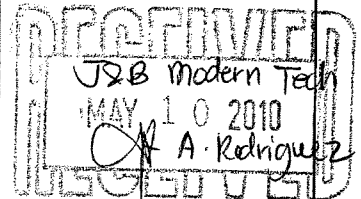 RECEIVED
J&B Modern Tech
MAY 10 2010
A. Rodriguez
RECEIVED